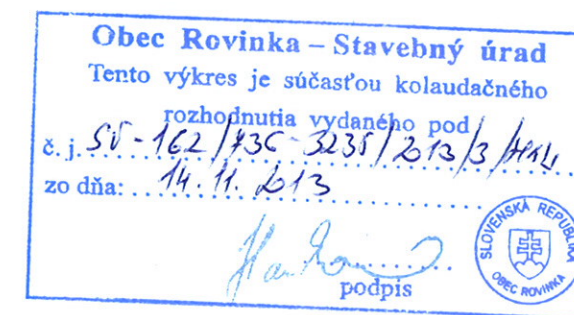 Obec Rovinka – Stavebný úrad
Tento výkres je súčasťou kolaudačného
rozhodnutia vydaného pod
č. j. SÚ-162/736-3235/2013/3/
zo dňa: 14. 11. 2013
podpis
SLOVENSKÁ REPUBLIKA
OBEC ROVINKA